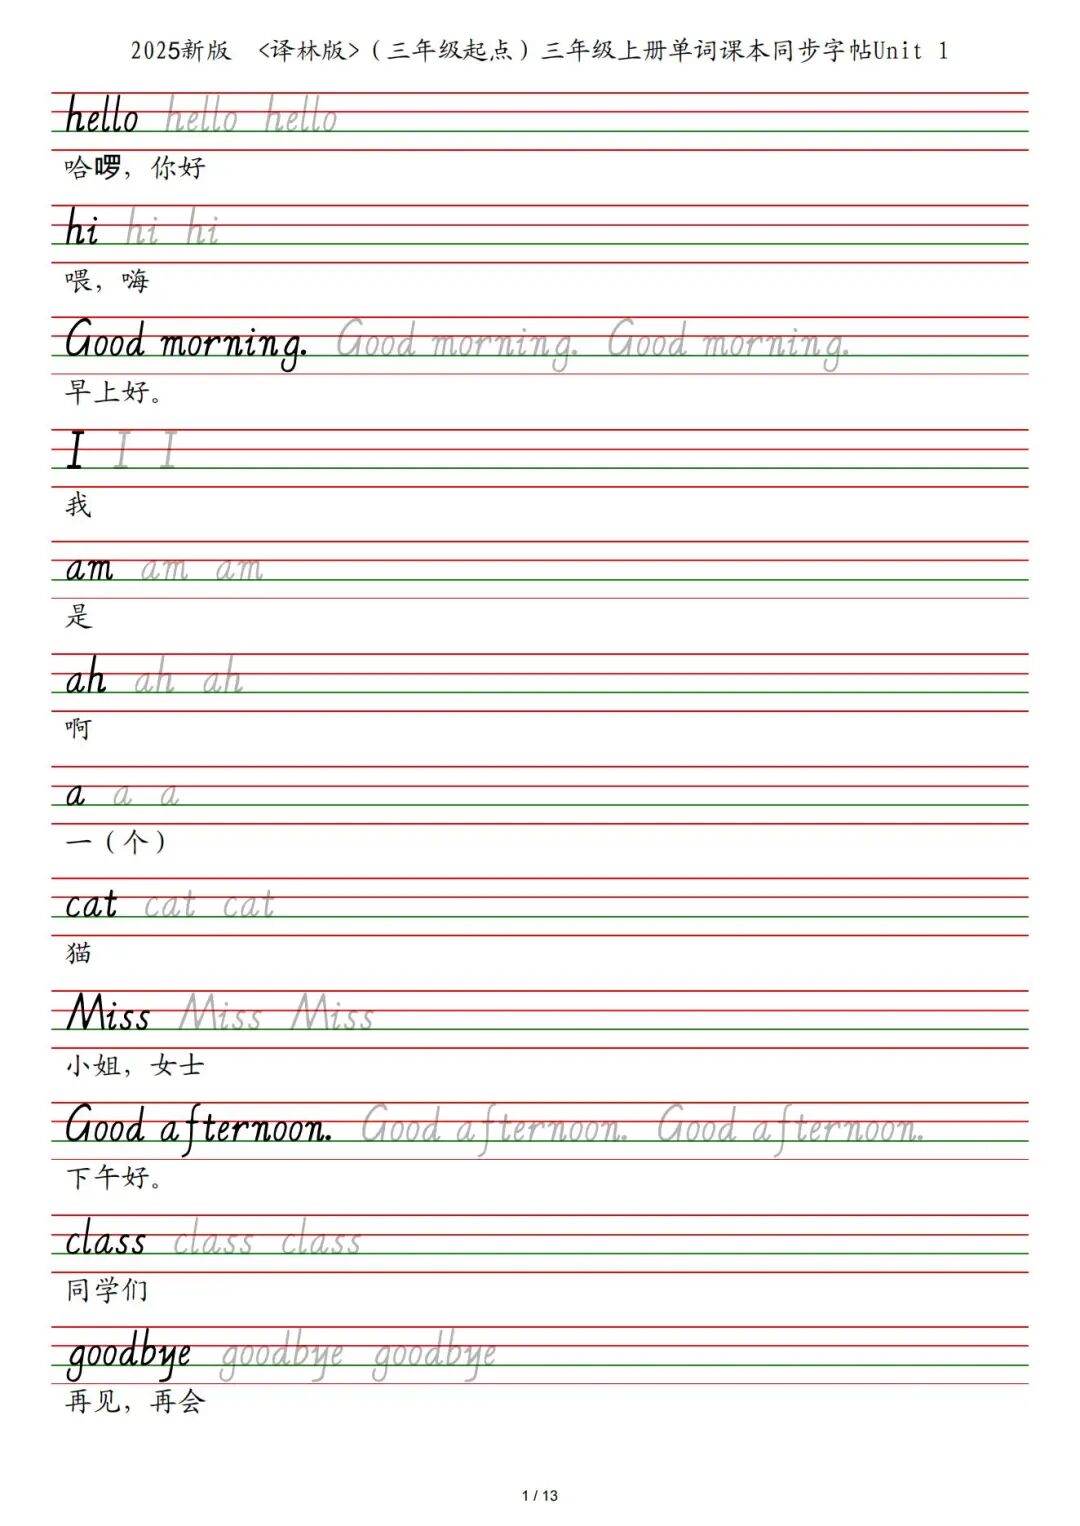 2025新版　<译林版>（三年级起点）三年级上册单词课本同步字帖Unit 1
hello hello hello
哈啰，你好
hi hi hi
喂，嗨
Good morning. Good morning. Good morning.
早上好。
I I I
我
am am am
是
ah ah ah
啊
a a a
一（个）
cat cat cat
猫
Miss Miss Miss
小姐，女士
Good afternoon. Good afternoon. Good afternoon.
下午好。
class class class
同学们
goodbye goodbye goodbye
再见，再会
1 / 13